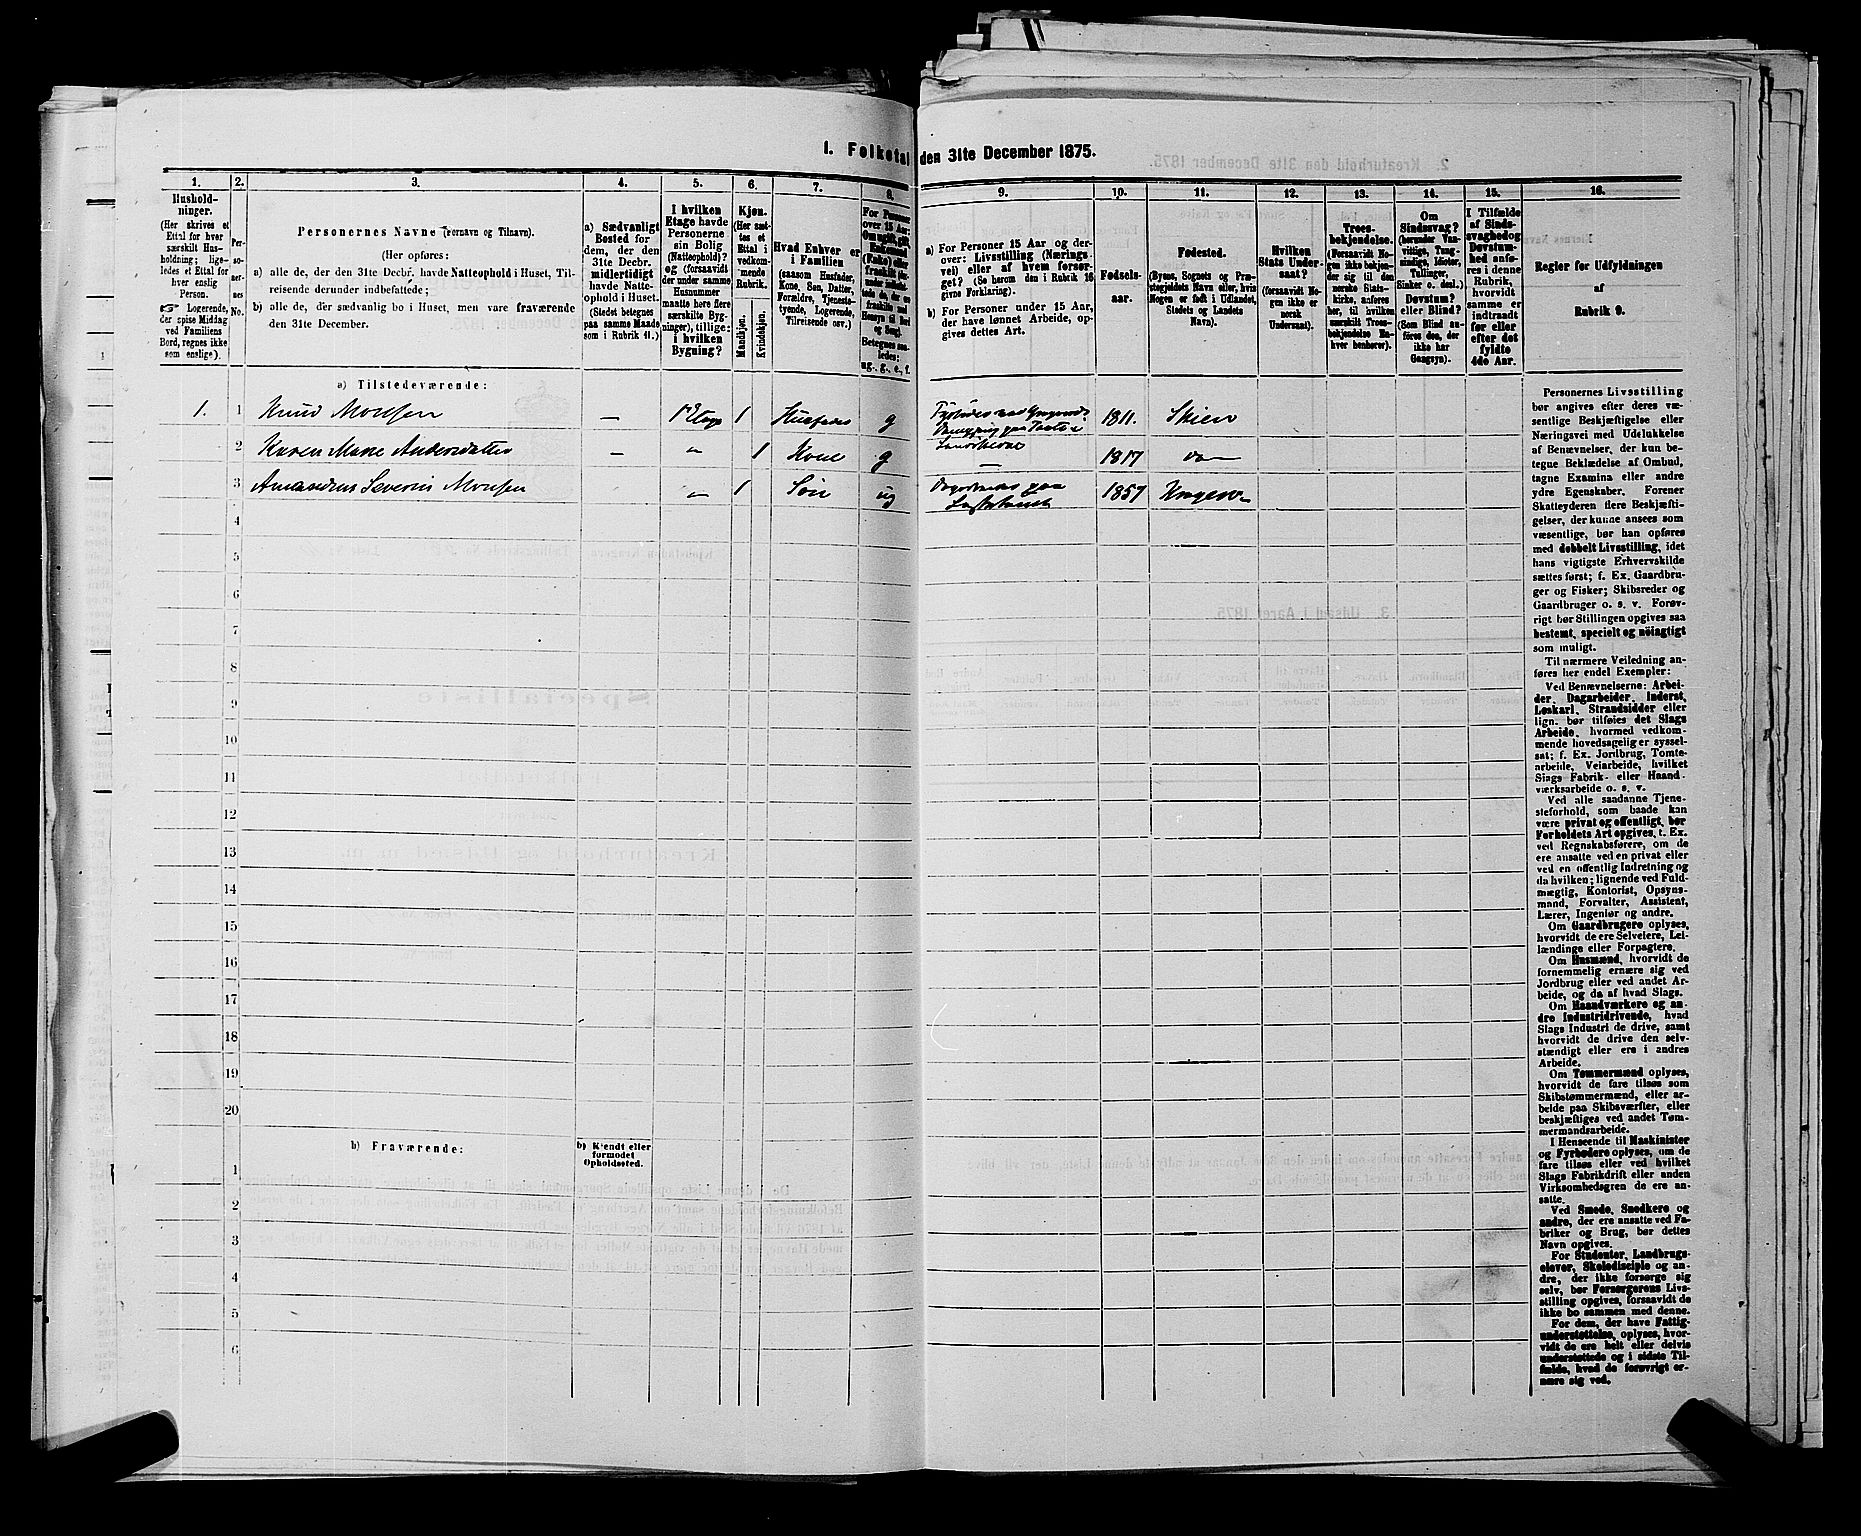 1. Folketal den 31te December 1875.
1.
2.
3.
4.
5.
6.
7.
8.
9.
10.
11.
12.
13.
14.
15.
16.
Hushold-
ninger.
(Her skrives et
Ettal for hver
særskilt Hus-
holdning; lige-
ledes et Ettal for
hver enslig
Person.
☞ Logerende,
der spise Middag
ved Familiens
Bord, regnes ikke
som enslige).
Per-
so-
ner-
nes
No.
Personernes Navne (Fornavn og Tilnavn).
(Her opføres:
a) alle de, der den 31te Decbr. havde Natteophold i Huset, Til-
reisende derunder indbefattede;
b) alle de, der sædvanlig bo i Huset, men vare fraværende
den 31te December.
a) Sædvanligt
Bosted for
dem, der den
31te Decbr.
midlertidigt
havde Natte-
ophold i Huset.
(Stedet betegnes
paa samme Maade
som i Rubrik 11.)
I hvilken
Etage havde
Personerne
sin Bolig
(Natteophold)?
og (forsaavidt
der under samme
Husnummer
maatte høre flere
særskilte Byg-
ninger), tillige:
i hvilken
Bygning?
Kjøn.
(Her sæt-
tes et
Ettal i
vedkom-
mende
Rubrik.
Mandkjøn.
Kvindekjøn.
Hvad Enhver er
i Familien
(saasom Husfader,
Kone, Søn, Datter,
Forældre, Tjeneste-
tyende, Logerende,
Tilreisende osv.)
For Personer
over 15 Aar:
Betegnes saa-
ledes:
ug., g., e., f.
a) For Personer 15 Aar og der-
over: Livsstilling (Nærings-
vei) eller af hvem forsør-
get? (Se herom den i Rubrik 16
givne Forklaring).
b) For Personer under 15 Aar,
der have lønnet Arbeide, op-
gives dettes Art.
Fødsels-
aar.
Fødested.
(Byens, Sognets og Præ-
stegjeldets Navn eller, hvis
Nogen er født i Udlandet,
Stedets og Landets
Navn).
Hvilken
Stats Under-
saat?
(forsaavidt No-
gen ikke er
norsk
Undersaat).
Troes-
bekjendelse.
(Forsaavidt No-
gen ikke bekjen-
der sig til den
norske Stats-
kirke, anføres
her, til hvilken
særskilt Troes-
bekjendelse En-
hver henhører).
Om
Sindssvag?
(herunder Van-
vittige, Tung-
sindige, Idioter,
Tullinger,
Sinker o. desl.)
Døvstum?
eller Blind?
(Som Blind an-
føres den, der
ikke har
Gangsyn).
I Tilfælde
af Sinds-
svaghed og
Døvstum-
hed anfø-
res i denne
Rubrik,
hvorvidt
samme er
indtraadt
før eller
efter det
fyldte
4de Aar.
Regler for Udfyldningen
af
Rubrik 9.
a) Tilstedeværende:
1. 1 Knud Monsen — 1ste Etage 1 Husfader g 1811. Skien
2 Karen Marie Andersdatter — " 1 Kone g — 1817 do
3 Severin Monsen " 1 Søn ug 1857
4
5
6
7
8
9
10
11
12
13
14
15
16
17
18
19
20
b) Fraværende:
b) Kjendt eller
formodet
Opholdssted.
1
2
3
4
5
6
Personernes Livsstilling
bør angives efter deres væ-
sentlige Beskjæftigelse eller
Næringsvei med Udelukkelse
af Benævnelser, der kun be-
tegne Beklædelse af Ombud,
tagne Examina eller andre
ydre Egenskaber. Forener
Skatteyderen flere Beskjæfti-
gelser, der kunne ansees som
væsentlige, bør han opføres
med dobbelt Livsstilling, idet
hans vigtigste Erhvervskilde
sættes først; f. Ex. Gaardbru-
ger og Fisker; Skibsreder og
Gaardbruger o. s. v. Forøv-
rigt bør Stillingen opgives saa
bestemt, specielt og nöiagtigt
som muligt.
Til nærmere Veiledning an-
føres her endel Exempler:
Ved Benævnelserne: Arbei-
der, Dagarbeider, Inderst,
Løskarl, Strandsidder eller
lign. bør tilføies det Slags
Arbeide, hvormed vedkom-
mende hovedsagelig er syssel-
sat; f. Ex. Jordbrug, Tomte-
arbeide, Veiarbeide, hvilket
Slags Fabrik- eller Haand-
værksarbeide o. s. v.
Ved alle saadanne Tjene-
steforhold, som baade kan
være privat og offentligt, bør
Forholdets Art opgives, t. Ex.
ved Regnskabsførere, om de
ere ansatte ved en privat eller
ved en offentlig Indretning og
da hvilken; lignende ved Fuld-
mægtig, Kontorist, Opsyns-
mand, Forvalter, Assistent,
Lærer, Ingeniør og andre.
Om Gaardbrugere oplyses,
hvorvidt de ere Selveiere, Lei-
lændinge eller Forpagtere.
Om Husmænd, hvorvidt de
fornemmelig ernære sig ved
Jordbrug eller ved andet Ar-
beide, og da af hvad Slags.
Om Haandværkere og an-
dre Industridrivende, hvad
Slags Industri de drive, samt
hvorvidt de drive den selv-
stændigt eller ere i andres
Arbeide.
Om Tømmermænd oplyses,
hvorvidt de fare tilsøs som
Skibstømmermænd, eller ar-
beide paa Skibsværfter, eller
beskjæftiges ved andet Tøm-
mermandsarbeide.
I Henseende til Maskinister
og Fyrbødere oplyses, om de
fare tilsøs eller ved hvilket
Slags Fabrikdrift eller anden
Virksomhedsgren de ere an-
satte.
Ved Smede, Snedkere og
andre, der ere ansatte ved Fa-
briker og Brug, bør dettes
Navn opgives.
For Studenter, Landbrugs-
elever, Skoledisciple og an-
dre, der ikke forsørge sig
selv, bør Forsørgerens Livs-
stilling opgives, forsaavidt de
ikke bo sammen med denne.
For dem, der have Fattig-
understøttelse, oplyses, hvor-
vidt de ere helt eller delvis
understøttede og i sidste Til-
fælde, hvad de forøvrigt er-
nære sig ved.